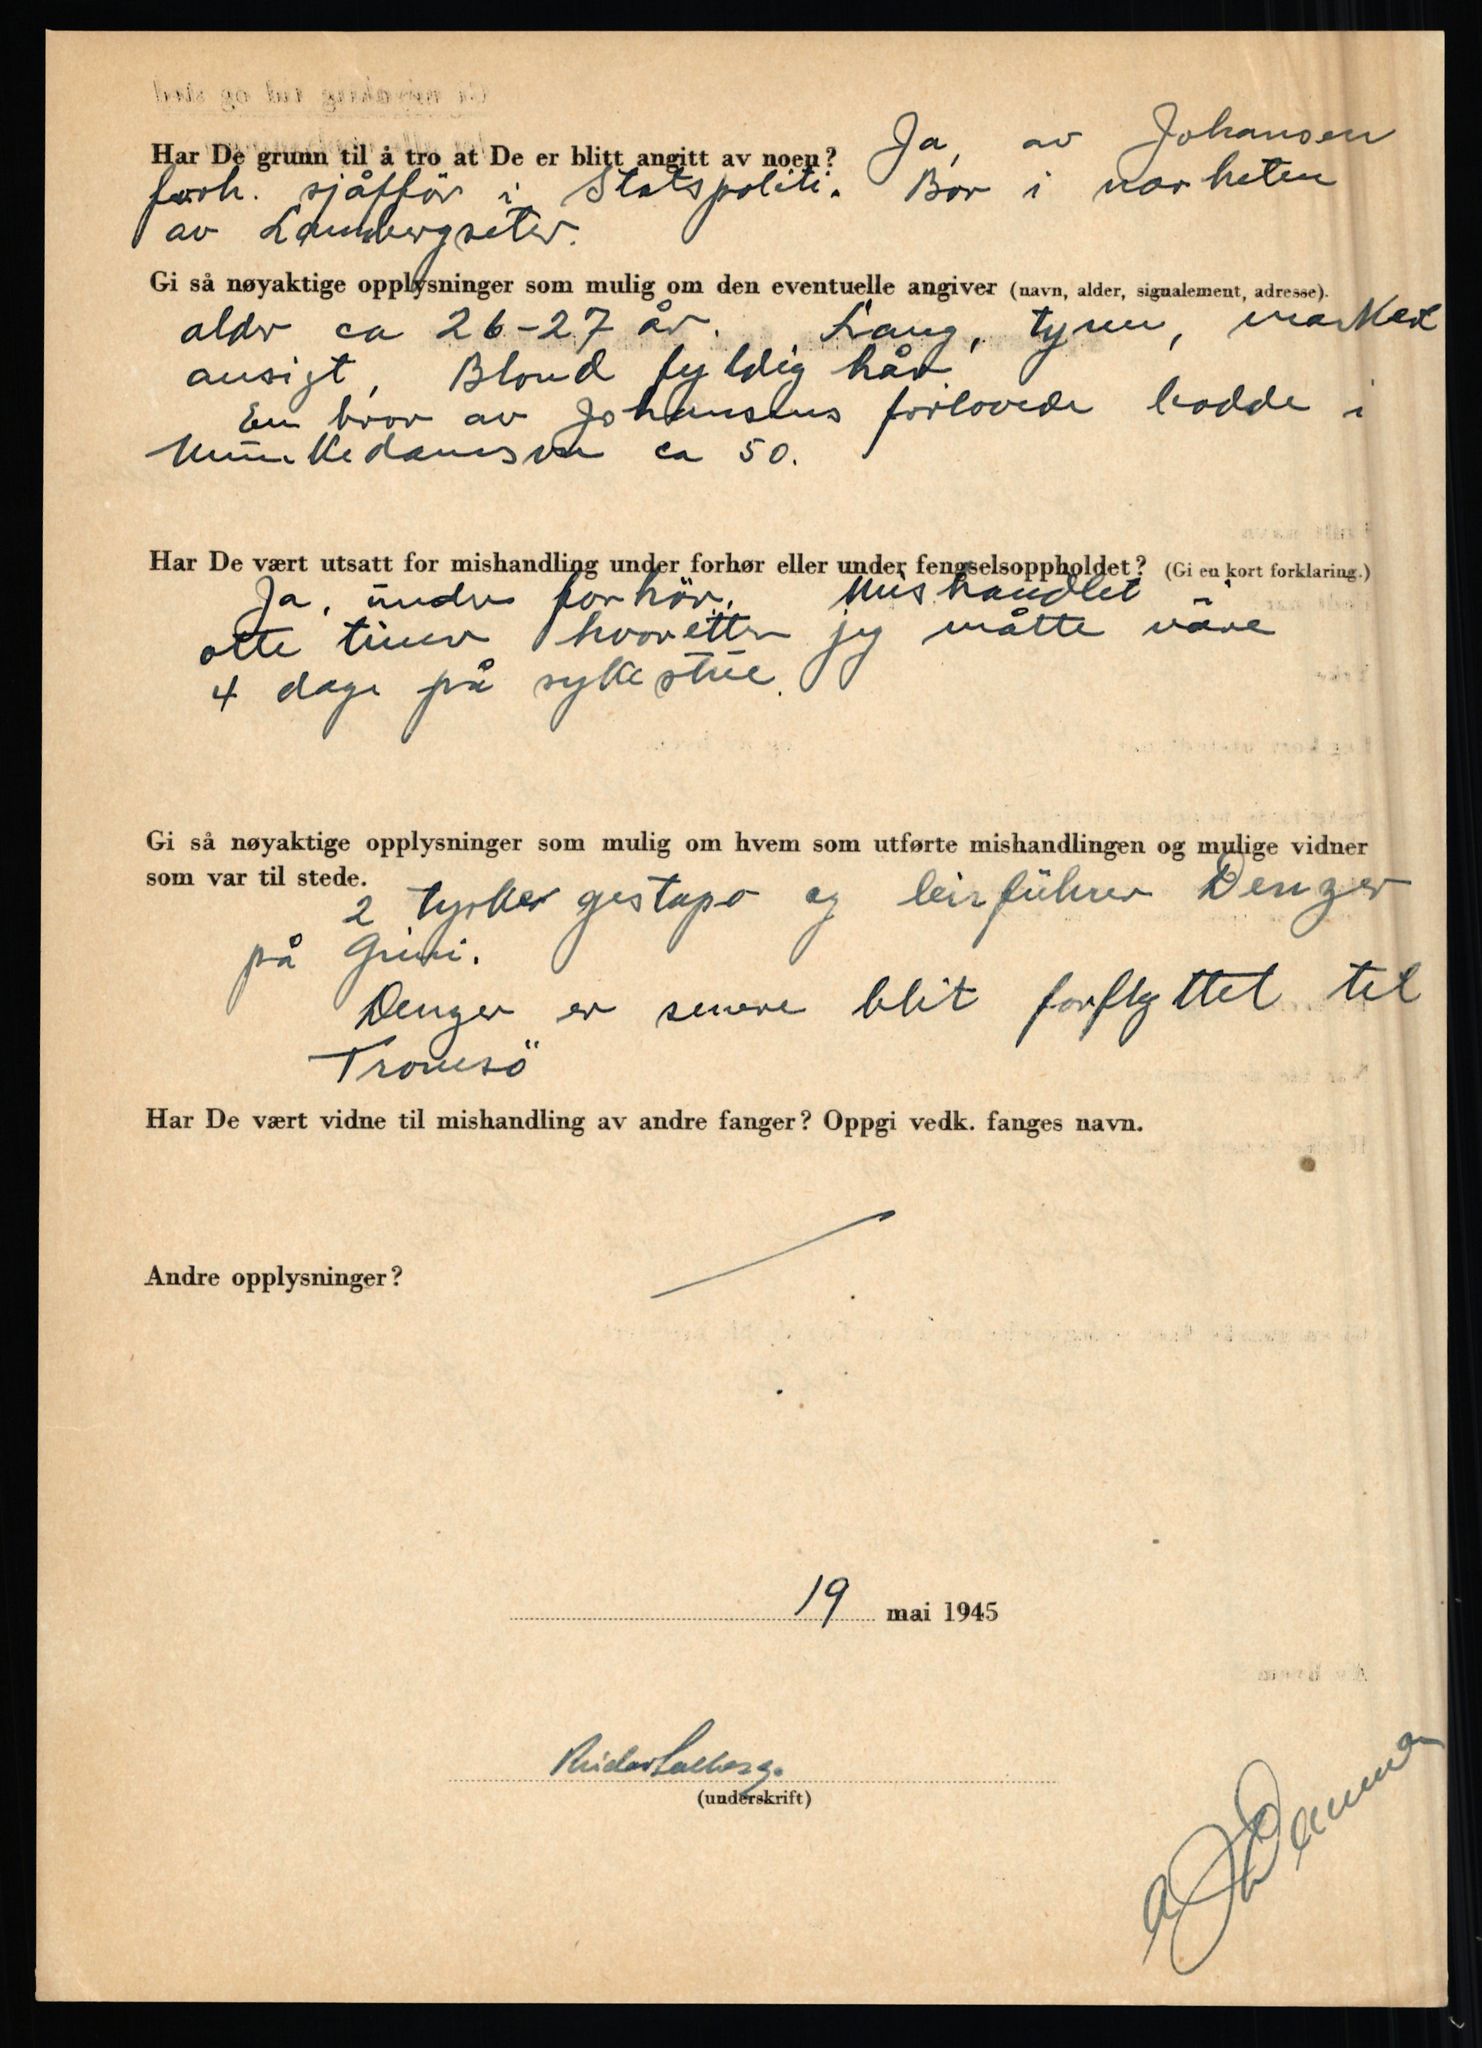 Har De grunn til å tro at De er blitt angitt av noen? Ja, av Johansen
forh. sjåfför i Statspoliti. Bor i narheten
av Lambergseter.
Gi så nøyaktige opplysninger som mulig om den eventuelle angiver (navn, alder, signalement, adresse).
alder ca 26-27 år. Lang, tynn, marked
ansigt, Blond fyldig hår
En bror av Johansens forlovede bodde i
Munkedamsvn ca 50.
Har De vært utsatt for mishandling under forhør eller under fengselsoppholdet? (Gi en kort forklaring.)
Ja, under forhör. Mishandlet i
otte timer hvoretter jeg måtte väre
4 dage på sykestue.
Gi så nøyaktige opplysninger som mulig om hvem som utførte mishandlingen og mulige vidner
som var til stede.
2 tysker gestapo og leirführer Denzer
på Grini.
Denzer er senere blit forflyttet til
Tromsö
Har De vært vidne til mishandling av andre fanger? Oppgi vedk. fanges navn.
Andre opplysninger?
19 mai 1945
Reidar Solberg.
(underskrift)